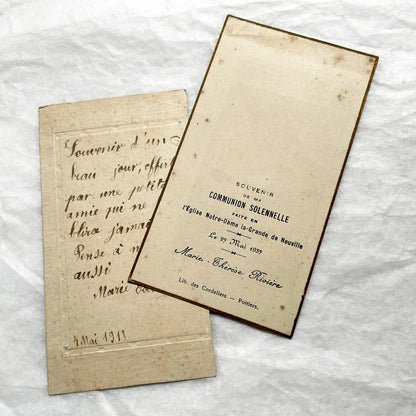 Souvenir d'un
beau jour, offert
par une petite
amie qui ne
jamai
Pense à m
aussi
Marie
4 Mai 1913
SOUVENIR
DE MA
COMMUNION SOLENNELLE
FAITE EN
l'Église Notre-Dame la-Grande de Neuville
Le 27 Mai 1937
Marie-Thérèse Rivière
Lib. des Cordeliers — Poitiers.